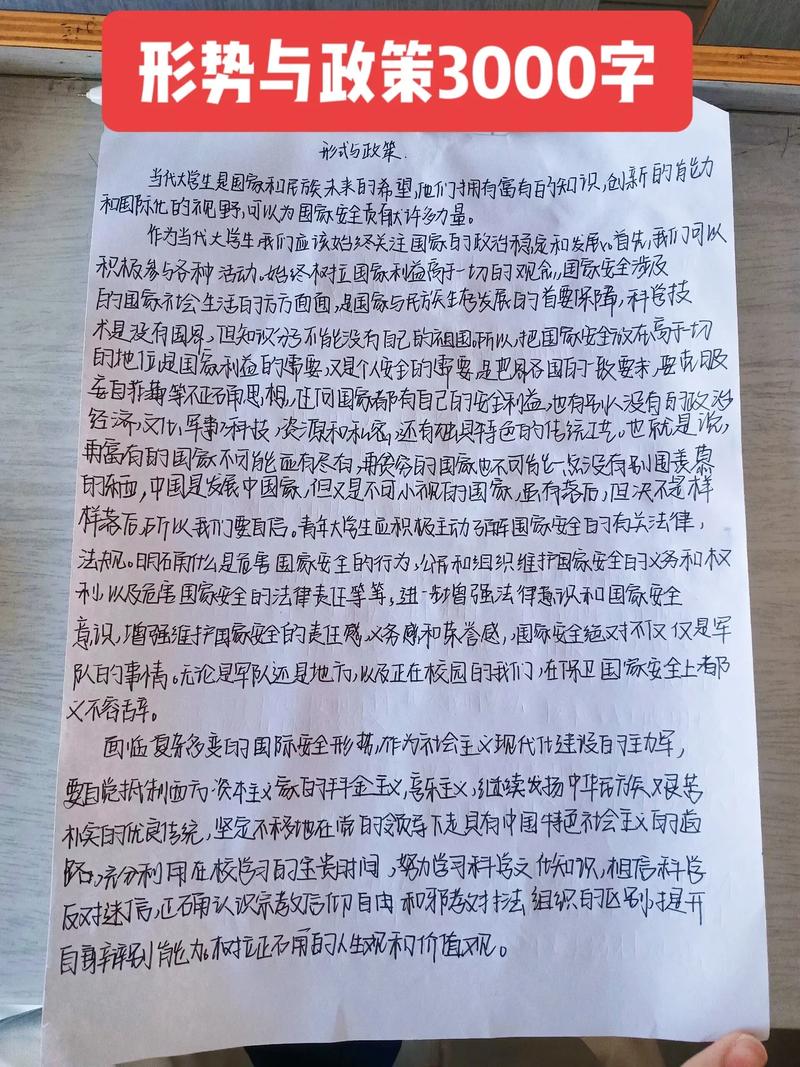 形势与政策3000字
形式与政策.
当代大学生是国家和民族未来的希望,他们拥有富有的知识,创新的能力
和国际化的视野,可以为国家安全贡献许多力量。
作为当代大学生我们应该始终关注国家的政治稳定和发展。首先,我们可以
积极参与各种活动。始终树立国家利益高于一切的观念,国家安全涉及
的国家社会生活的方方面面,是国家与民族生存发展的首要保障,科学技
术是没有国界,但知识分子不能没有自己的祖国。所以,把国家安全放在高于一切
的地位,是国家利益的需要,又是个人安全的需要,是世界各国的一致要求,要克服
妄自菲薄等不正确思想,任何国家都有自己的安全利益,也有别人没有的政治
经济,文化,军事,科技,资源和私密,还有独具特色的传统工艺。也就是说,
再富有的国家不可能应有尽有,再贫穷的国家也不可能一点没有别国羡慕
的东西,中国是发展中国家,但又是不可小视的国家,虽有落后,但决不是样
样落后,所以我们要自信。青年大学生应积极主动了解国家安全的有关法律,
法规。明确什么是危害国家安全的行为,公民和组织维护国家安全的义务和权
利,以及危害国家安全的法律责任等等,进一步增强法律意识和国家安全
意识,增强维护国家安全的责任感,义务感和荣誉感,国家安全绝对不仅仅是军
队的事情。无论是军队还是地方,以及正在校园的我们,在保卫国家安全上都
义不容辞。
面临复杂多变的国际安全形势,作为社会主义现代化建设的主力军,
要自觉抵制西方资本主义家的拜金主义,享乐主义,继续发扬中华民族艰苦
朴实的优良传统,坚定不移地在党的领导下走具有中国特色社会主义的道
路,充分利用在校学习的宝贵时间,努力学习科学文化知识,相信科学
反对迷信,正确认识宗教信仰自由和邪教对抗法组织的区别,提升
自身辨别能力。树立正确的人生观和价值观。